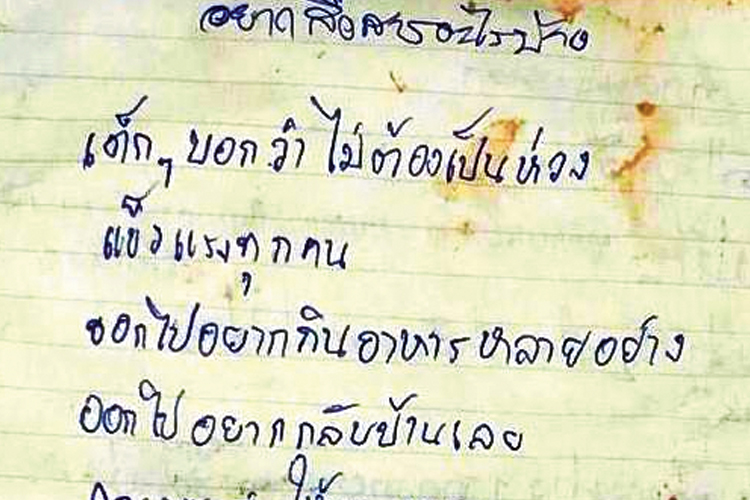 อยากสื่อสารอะไรบ้าง
เด็กๆ บอกว่า ไม่ต้องเป็นห่วง
แข็งแรงทุกคน
ออกไปอยากกินอาหารหลายอย่าง
ออกไป อยากกลับบ้านเลย